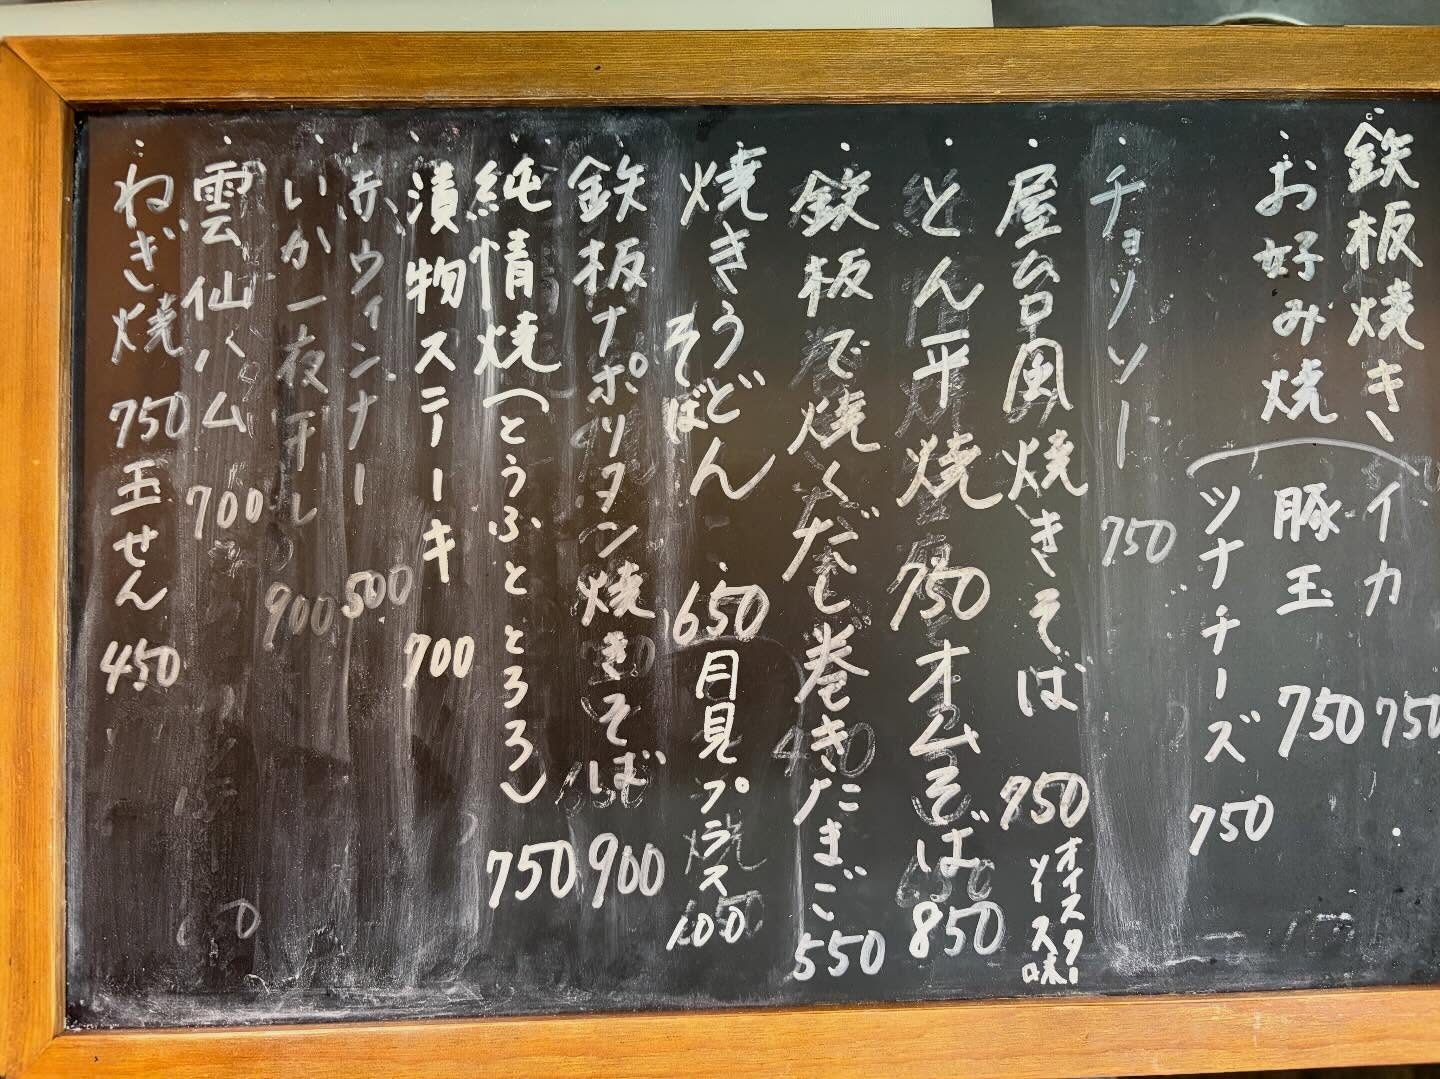 鉄板焼き イカ 750
お好み焼 豚玉 750
ツナチーズ 750
チョリソー 750
屋台風焼きそば 750 オイスターソース味
とん平焼 750 オムそば 850
鉄板で焼くだし巻きたまご 550
焼きうどん 650 月見プラス 100
そばめし
鉄板ナポリタン焼きそば 900
純情焼(とうふととろろ) 750
漬物ステーキ 700
赤ウィンナー 500
いか一夜干し 900
雲仙ハム 700
ねぎ焼 750 玉せん 450